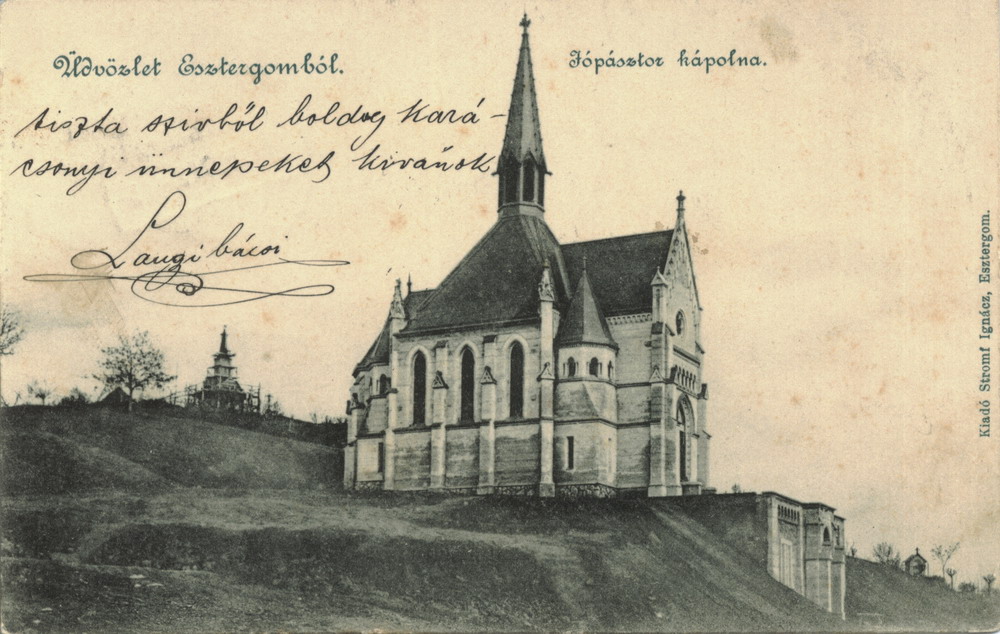 Üdvözlet Esztergomból.
Jópásztor kápolna.
tiszta szivből boldog kará-
csonyi ünnepeket kivánok
Langi bácsi
Kiadó Stromf Ignácz, Esztergom.